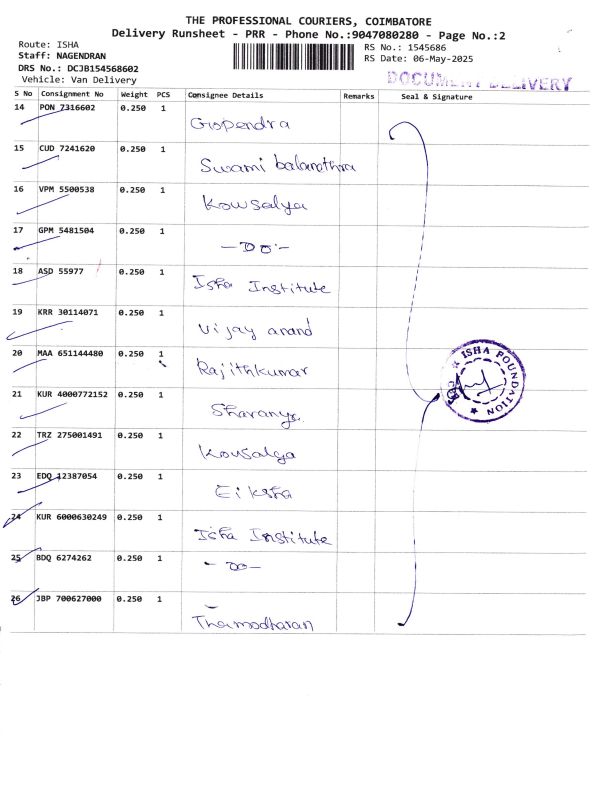 THE PROFESSIONAL COURIERS, COIMBATORE
Delivery Runsheet - PRR - Phone No.:9047080280 - Page No.:2
Route: ISHA
Staff: NAGENDRAN
DRS No.: DCJB154568602
Vehicle: Van Delivery
RS No.: 1545686
RS Date: 06-May-2025
DOCUMENT DELIVERY
S No Consignment No Weight PCS Consignee Details Remarks Seal & Signature
14 PON 7316602 0.250 1 Gopendra
15 CUD 7241620 0.250 1 Swami
16 VPM 5500538 0.250 1 Kowsalya
17 GPM 5481504 0.250 1 -DO-
18 ASD 55977 0.250 1 Isha Institute
19 KRR 30114071 0.250 1 Vijay anand
20 MAA 651144480 0.250 1 Rajithkumar
21 KUR 4000772152 0.250 1 Sharanya
22 TRZ 275001491 0.250 1 Kowsalya
23 EDQ 12387054 0.250 1 Eiksha
24 KUR 6000630249 0.250 1 Isha Institute
25 BDQ 6274262 0.250 1 -DO-
26 JBP 700627000 0.250 1 Thamodharan
★ ISHA FOUNDATION ★